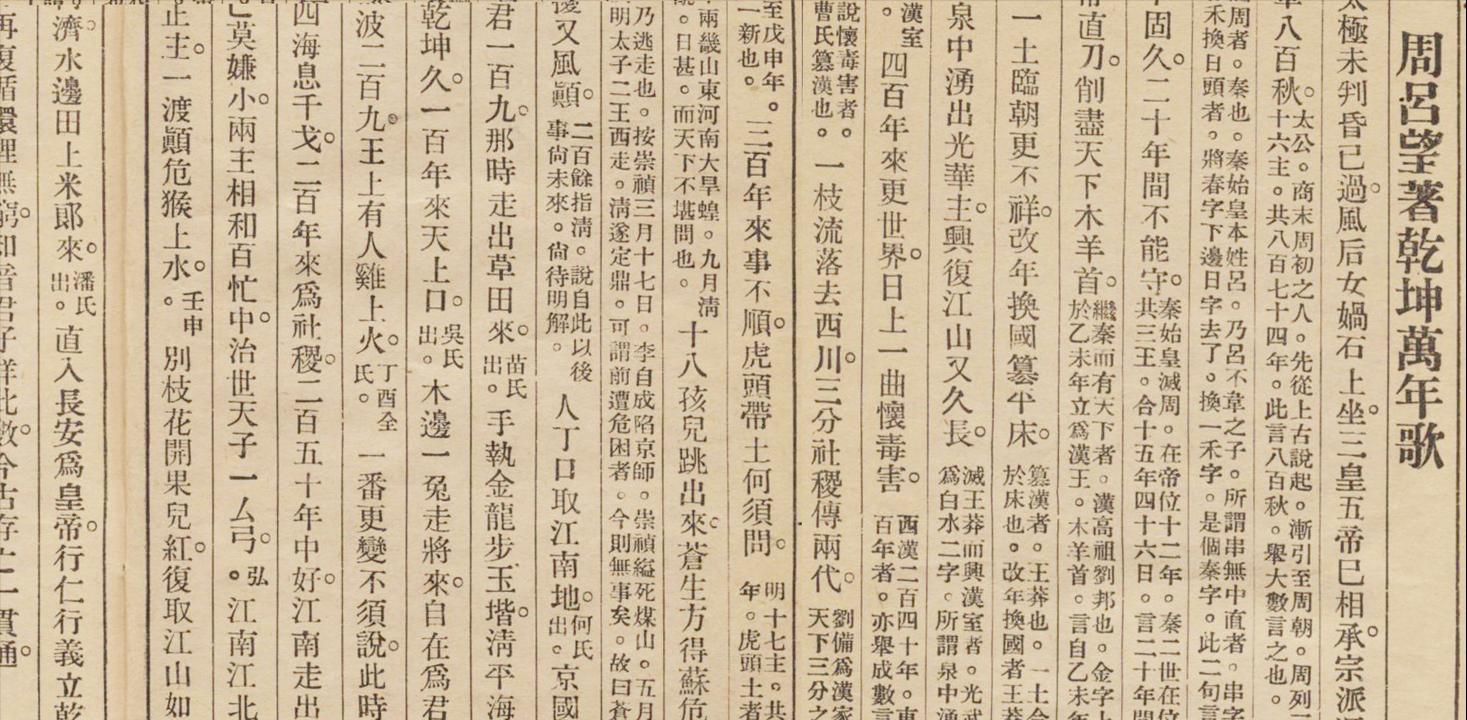 周呂望著乾坤萬年歌
太極未判昏已過。風后女媧石上坐。三皇五帝已相承。宗派
八百秋。太公。商末周初之人。先從上古說起。漸引至周朝。周列
十六主。共八百七十四年。此言八百秋。舉大數言之也。
周者。秦也。秦始皇本姓呂。乃呂不韋之子。所謂串無中直者。串字
禾換日頭者。將春字下邊日字去了。換一禾字。是個秦字。此二句言
固久。二十年間不能守。秦始皇滅周。在帝位十二年。秦二世在位
共三王。合十五年四十六日。言二十年間
直刀。削盡天下木羊首。繼秦而有天下者。漢高祖劉邦也。金字上
於乙未年立爲漢王。木羊首。言自乙未年
一土臨朝更不祥。改年換國篡平床。篡漢者。王莽也。一土合
於床也。改年換國者王莽
泉中湧出光華主。興復江山又久長。滅王莽而興漢室者。光武
爲白水二字。所謂泉中湧
漢室
。四百年來更世界。日上一曲懷毒害。西漢二百四十年。東
百年者。亦舉成數言
說懷毒害者。
曹氏篡漢也。一枝流落去西川。三分社稷傳兩代。劉備爲漢家
天下三分之
至戊申年。
一新也。三百年來事不順。虎頭帶土何須問。明十七主。共
年。虎頭土者
兩畿山東河南大旱蝗。九月淸
。日甚。而天下不堪問也。十八孩兒跳出來。蒼生方得蘇危
乃逃走也。按崇禎三月十七日。李自成陷京師。崇禎縊死煤山。五月
明太子二王西走。淸遂定鼎。可謂前遭危困者。今則無事矣。故曰蒼
又風顚。二百餘指淸。說自此以後
事尙未來。尙待明解。人丁口取江南地。何氏
出。京國
君一百九。那時走出草田來。苗氏
出。手執金龍步玉堦。淸平海
乾坤久。一百年來天上口。吳氏
出。木邊一兔走將來。自在爲君
波二百九。王上有人雞上火。丁酉全
氏。一番更變不須說。此時
四海息千戈。二百年來爲社稷。二百五十年中好。江南走出
莫嫌小。兩主相和百忙中。治世天子一厶弓。弘
。江南江北
正主。一渡顚危猴上水。壬申
。別枝花開果兒紅。復取江山如
濟水邊田上米郞來。潘氏
出。直入長安爲皇帝。行仁行義立乾